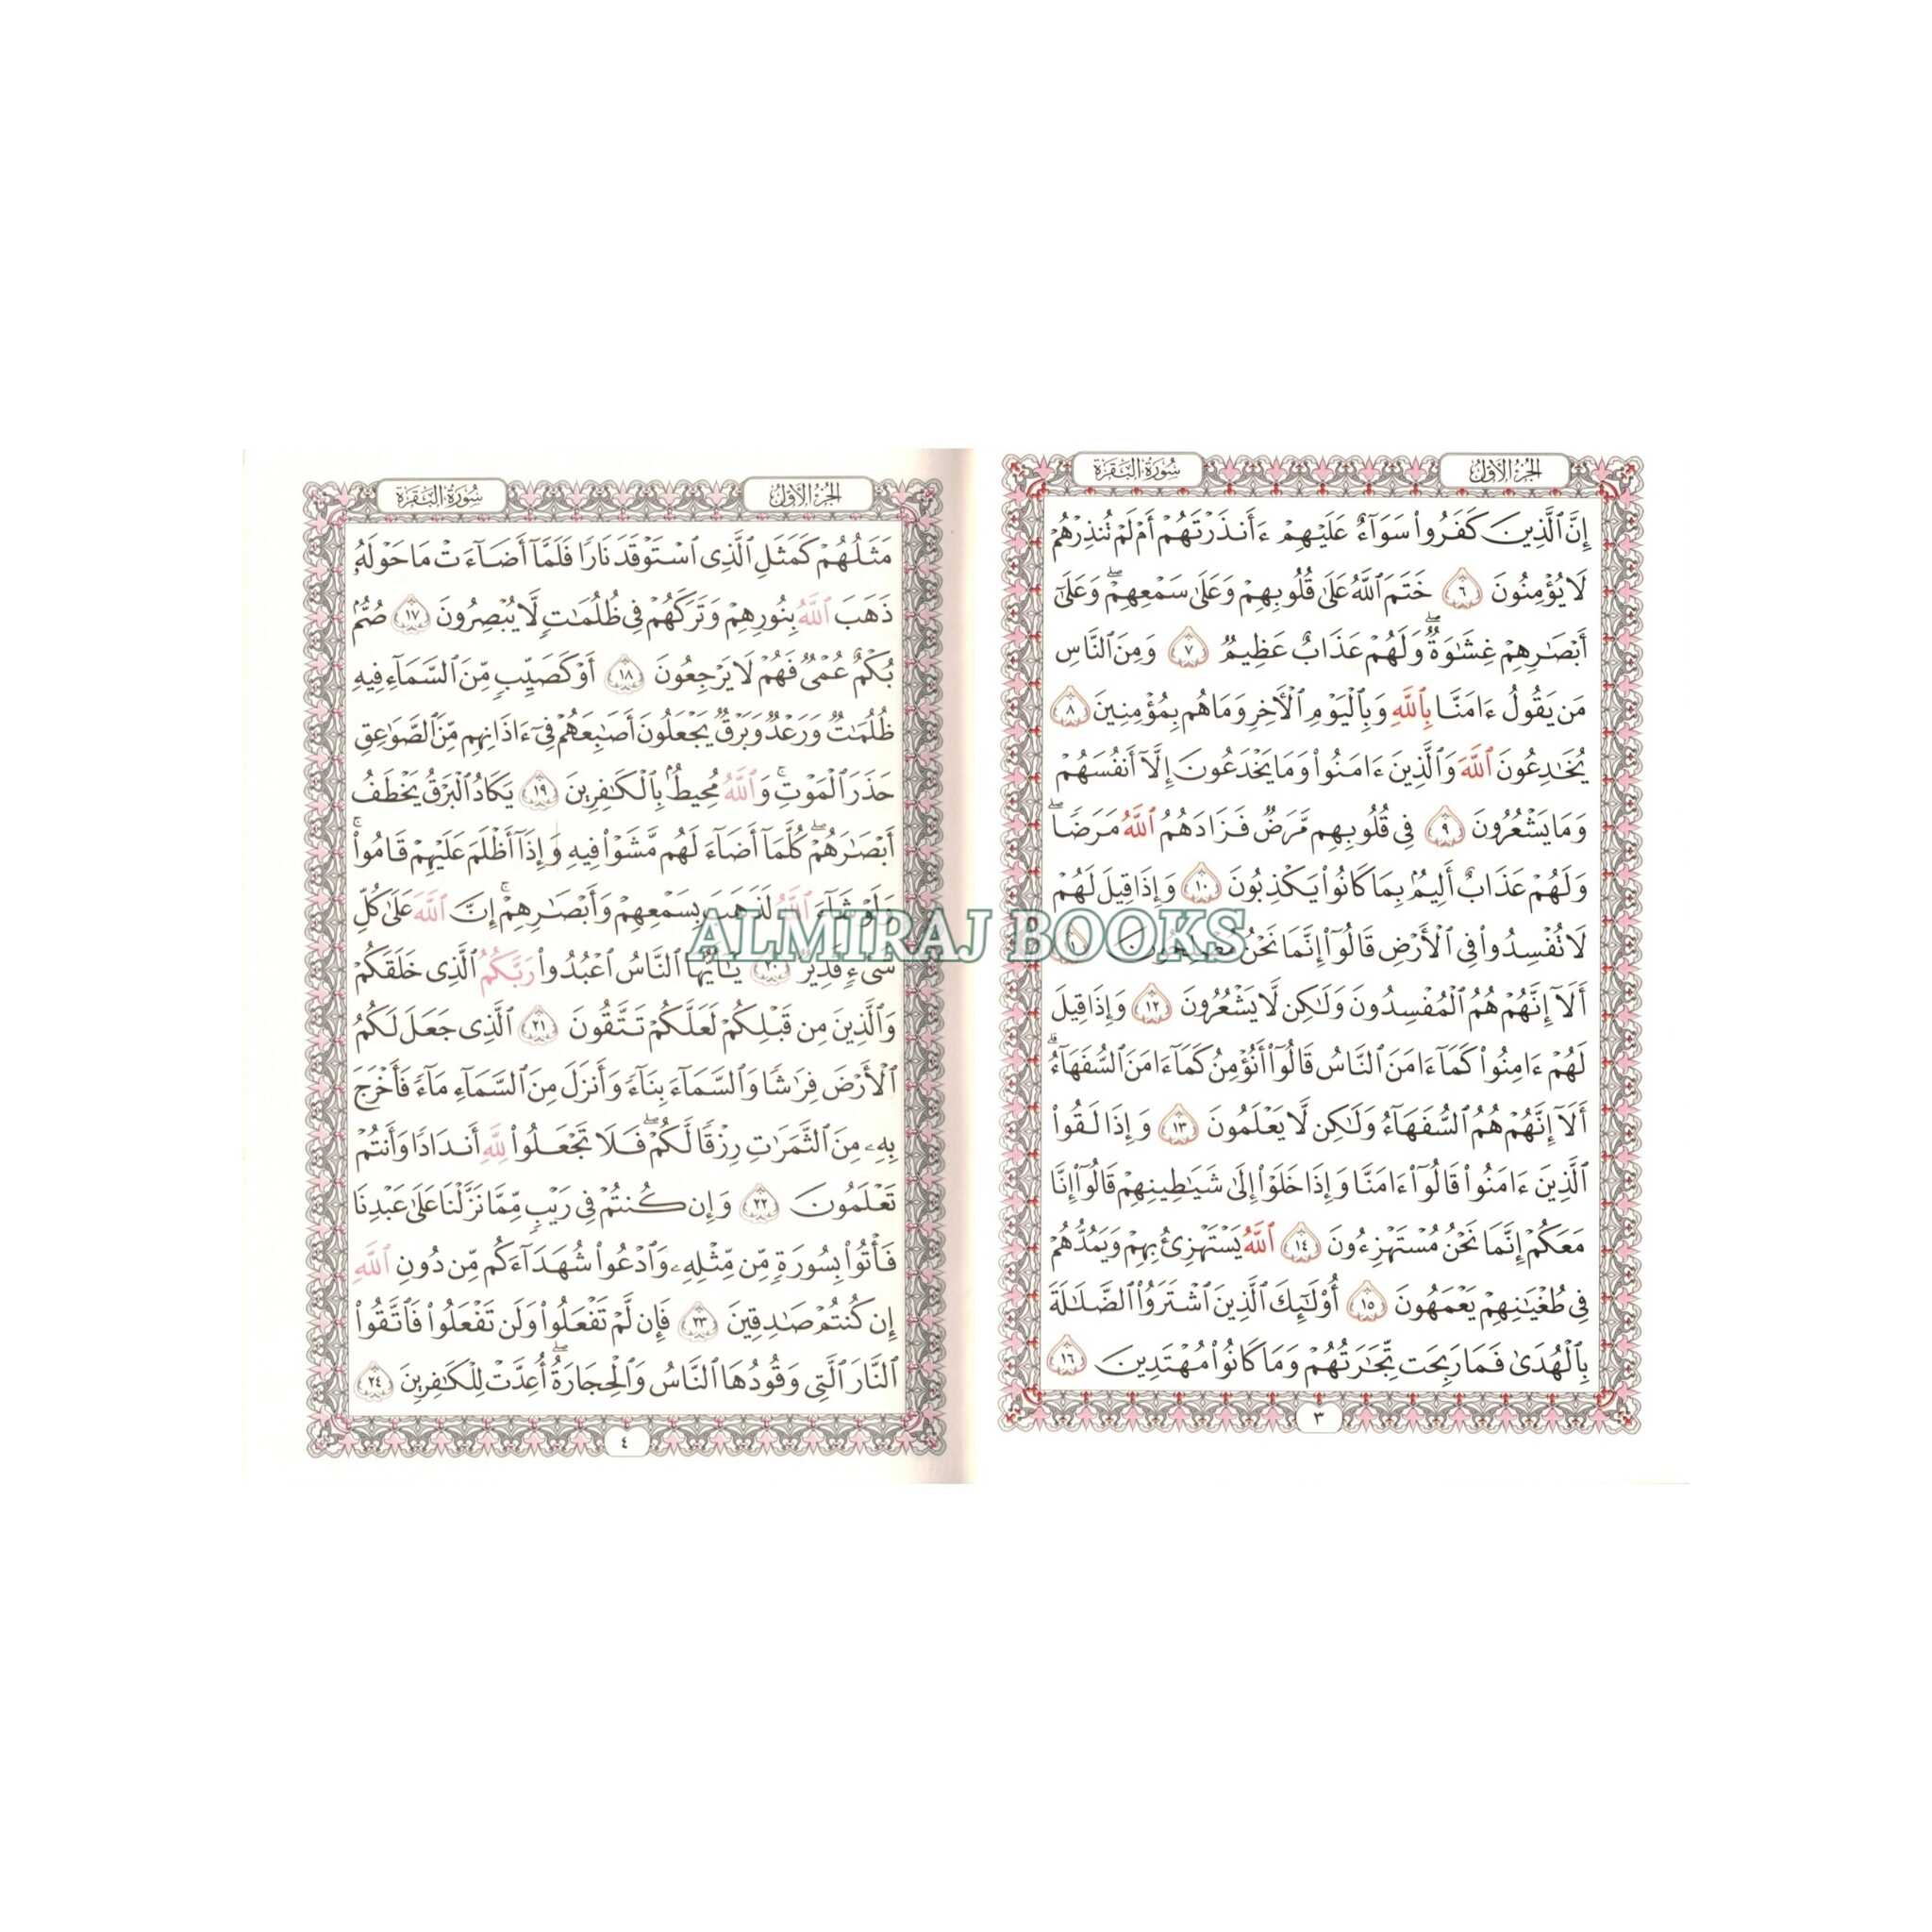 الجزء الأول
سورة البقرة
إِنَّ ٱلَّذِينَ كَفَرُوا۟ سَوَآءٌ عَلَيْهِمْ ءَأَنذَرْتَهُمْ أَمْ لَمْ تُنذِرْهُمْ
لَا يُؤْمِنُونَ ٦ خَتَمَ ٱللَّهُ عَلَىٰ قُلُوبِهِمْ وَعَلَىٰ سَمْعِهِمْ ۖ وَعَلَىٰٓ
أَبْصَـٰرِهِمْ غِشَـٰوَةٌ ۖ وَلَهُمْ عَذَابٌ عَظِيمٌ ٧ وَمِنَ ٱلنَّاسِ
مَن يَقُولُ ءَامَنَّا بِٱللَّهِ وَبِٱلْيَوْمِ ٱلْـَٔاخِرِ وَمَا هُم بِمُؤْمِنِينَ ٨
يُخَـٰدِعُونَ ٱللَّهَ وَٱلَّذِينَ ءَامَنُوا۟ وَمَا يَخْدَعُونَ إِلَّآ أَنفُسَهُمْ
وَمَا يَشْعُرُونَ ٩ فِى قُلُوبِهِم مَّرَضٌ فَزَادَهُمُ ٱللَّهُ مَرَضًا ۖ
وَلَهُمْ عَذَابٌ أَلِيمٌۢ بِمَا كَانُوا۟ يَكْذِبُونَ ١٠ وَإِذَا قِيلَ لَهُمْ
لَا تُفْسِدُوا۟ فِى ٱلْأَرْضِ قَالُوٓا۟ إِنَّمَا نَحْنُ مُصْلِحُونَ ١١
أَلَآ إِنَّهُمْ هُمُ ٱلْمُفْسِدُونَ وَلَـٰكِن لَّا يَشْعُرُونَ ١٢ وَإِذَا قِيلَ
لَهُمْ ءَامِنُوا۟ كَمَآ ءَامَنَ ٱلنَّاسُ قَالُوٓا۟ أَنُؤْمِنُ كَمَآ ءَامَنَ ٱلسُّفَهَآءُ ۗ
أَلَآ إِنَّهُمْ هُمُ ٱلسُّفَهَآءُ وَلَـٰكِن لَّا يَعْلَمُونَ ١٣ وَإِذَا لَقُوا۟
ٱلَّذِينَ ءَامَنُوا۟ قَالُوٓا۟ ءَامَنَّا وَإِذَا خَلَوْا۟ إِلَىٰ شَيَـٰطِينِهِمْ قَالُوٓا۟ إِنَّا
مَعَكُمْ إِنَّمَا نَحْنُ مُسْتَهْزِءُونَ ١٤ ٱللَّهُ يَسْتَهْزِئُ بِهِمْ وَيَمُدُّهُمْ
فِى طُغْيَـٰنِهِمْ يَعْمَهُونَ ١٥ أُو۟لَـٰٓئِكَ ٱلَّذِينَ ٱشْتَرَوُا۟ ٱلضَّلَـٰلَةَ
بِٱلْهُدَىٰ فَمَا رَبِحَت تِّجَـٰرَتُهُمْ وَمَا كَانُوا۟ مُهْتَدِينَ ١٦
٣
الجزء الأول
سورة البقرة
مَثَلُهُمْ كَمَثَلِ ٱلَّذِى ٱسْتَوْقَدَ نَارًا فَلَمَّآ أَضَآءَتْ مَا حَوْلَهُۥ
ذَهَبَ ٱللَّهُ بِنُورِهِمْ وَتَرَكَهُمْ فِى ظُلُمَـٰتٍ لَّا يُبْصِرُونَ ١٧ صُمٌّۢ
بُكْمٌ عُمْىٌ فَهُمْ لَا يَرْجِعُونَ ١٨ أَوْ كَصَيِّبٍ مِّنَ ٱلسَّمَآءِ فِيهِ
ظُلُمَـٰتٌ وَرَعْدٌ وَبَرْقٌ يَجْعَلُونَ أَصَـٰبِعَهُمْ فِىٓ ءَاذَانِهِم مِّنَ ٱلصَّوَٰعِقِ
حَذَرَ ٱلْمَوْتِ ۚ وَٱللَّهُ مُحِيطٌۢ بِٱلْكَـٰفِرِينَ ١٩ يَكَادُ ٱلْبَرْقُ يَخْطَفُ
أَبْصَـٰرَهُمْ ۖ كُلَّمَآ أَضَآءَ لَهُم مَّشَوْا۟ فِيهِ وَإِذَآ أَظْلَمَ عَلَيْهِمْ قَامُوا۟ ۚ
وَلَوْ شَآءَ ٱللَّهُ لَذَهَبَ بِسَمْعِهِمْ وَأَبْصَـٰرِهِمْ ۚ إِنَّ ٱللَّهَ عَلَىٰ كُلِّ
شَىْءٍ قَدِيرٌ ٢٠ يَـٰٓأَيُّهَا ٱلنَّاسُ ٱعْبُدُوا۟ رَبَّكُمُ ٱلَّذِى خَلَقَكُمْ
وَٱلَّذِينَ مِن قَبْلِكُمْ لَعَلَّكُمْ تَتَّقُونَ ٢١ ٱلَّذِى جَعَلَ لَكُمُ
ٱلْأَرْضَ فِرَٰشًا وَٱلسَّمَآءَ بِنَآءً وَأَنزَلَ مِنَ ٱلسَّمَآءِ مَآءً فَأَخْرَجَ
بِهِۦ مِنَ ٱلثَّمَرَٰتِ رِزْقًا لَّكُمْ ۖ فَلَا تَجْعَلُوا۟ لِلَّهِ أَندَادًا وَأَنتُمْ
تَعْلَمُونَ ٢٢ وَإِن كُنتُمْ فِى رَيْبٍ مِّمَّا نَزَّلْنَا عَلَىٰ عَبْدِنَا
فَأْتُوا۟ بِسُورَةٍ مِّن مِّثْلِهِۦ وَٱدْعُوا۟ شُهَدَآءَكُم مِّن دُونِ ٱللَّهِ
إِن كُنتُمْ صَـٰدِقِينَ ٢٣ فَإِن لَّمْ تَفْعَلُوا۟ وَلَن تَفْعَلُوا۟ فَٱتَّقُوا۟
ٱلنَّارَ ٱلَّتِى وَقُودُهَا ٱلنَّاسُ وَٱلْحِجَارَةُ ۖ أُعِدَّتْ لِلْكَـٰفِرِينَ ٢٤
٤
ALMIRAJ BOOKS